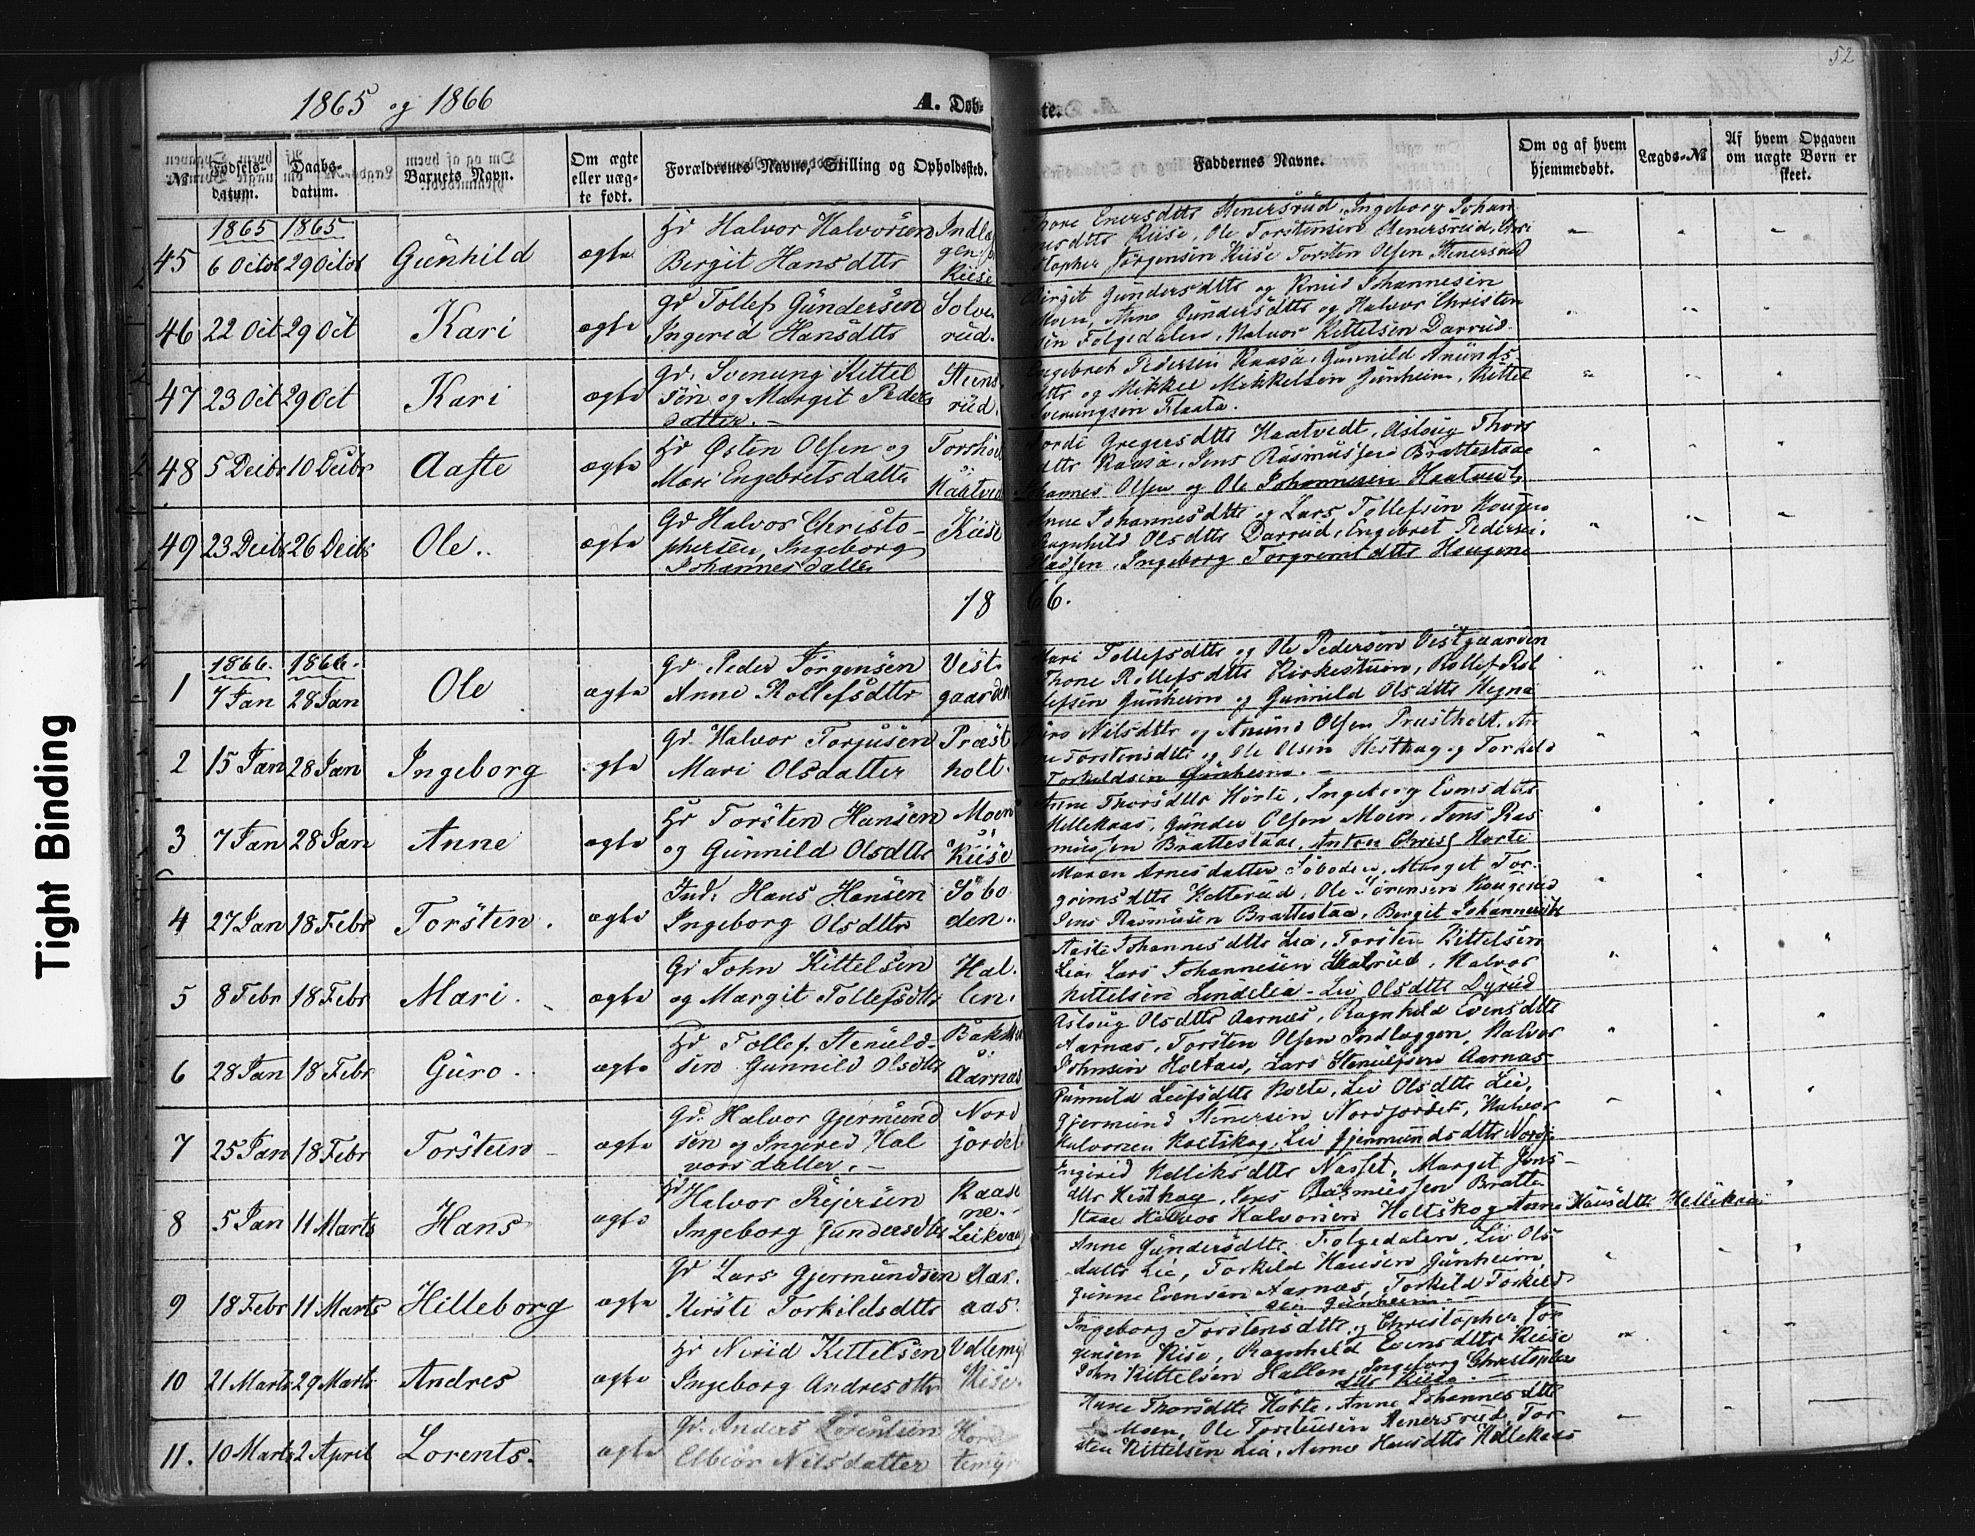 52
1865 og 1866
A. Døb-
te.
№
Fødsels-
datum.
Daabs-
datum.
Barnets Navn.
Om ægte
eller uæg-
te født.
Forældrenes Navne, Stilling og Opholdssted.
Faddernes Navne.
Om og af hvem
hjemmedøbt.
Lægds-№
Af hvem Opgaven
om uægte Børn er
skeet.
1865 1865
45 6 Octbr 29 Octbr Gunhild ægte
Hd Halvor Halvorsen
Bergit Hansdttr
Kiise
Thore Enersdttr Stenersrud, Ingeborg Johan
Kiise, Ole Torstensen Stenersrud, Chri
stopher Jørgensen Kiise Torsten Olsen Stenersrud
46 22 Oct 29 Oct Kari ægte
Gd Tollef Gundersen
Ingerid Hansdttr
Solve
rud.
Birgit Gundersdttr og Knud Johannesen
Moen, Anne Gundersdttr og Halvor Christen
sen Folgedalen, Halvor Kittelsen Darrud.
47 23 Oct 29 Oct Kari ægte
Gd. Svenung Kittel
søn og Margit Peders
datter.-
Steens
rud.
Engebret Pedersen Kaasa, Gunnild Amunds
dttr og Mikkel Mikkelsen Gunheim, Kittel
Svenungsen Flaata.
48 5 Decbr 10 Decbr Aaste ægte
Hd Østen Olsen og
Mari Engebretsdatter
Haatved
Gregersdttr Haatvedt, Aslaug Thors
dttr Kaasa, Jens Rasmussen Brattestaae
Johannes Olsen og Ole Johannesen Haatvedt
49 23 Decbr 26 Decbr Ole.. ægte
Gd Halvor Christo-
phersen, Ingeborg
Johannesdatter
Kiise
Anne Johannesdttr og Lars Tollefsen Haugen
Ragnhild Olsdttr Darrud, Engebret Pedersen
Ingeborg Torgrimsdttr Haugene
1866.
1866. 1866.
1 7 Jan 28 Jan Ole ægte
Gd. Peder Jørgensen
Anne Rollefsdttr
Vest
gaarden
Mari Tollefsdttr og Ole Pedersen Vestgaarden
Thone Rollefsdttr Kirkestuen, Rollef Rol
lefsen Gunheim og Gunnild Olsdttr Hegna
2 15 Jan 28 Jan Ingeborg ægte
Gd. Halvor Torjusen
Mari Olsdatter
Præst
holt.
Guro Nilsdttr og Amund Olsen Præstholt. An
ne Torstensdttr og Ole Olsen Hesthag og Torkild
Torkildsen Gunheim.-
3 7 Jan 28 Jan Anne ægte
Hd Torsten Hansen
og Gunnild Olsdttr
Moen
Kiise
Anne Thorsdttr Hørte, Ingeborg Evensdttr
Hellekaas, Gunder Olsen Moen, Jens Ras
mussen Brattestaae, Anton Chris Hørte
4 27 Jan 18 Febr Torsten. ægte
Ind. Hans Hansen
Ingeborg Olsdttr
Søbo
den.
Maren Arnesdatter Søboden, Marget Tor-
grimsdttr Kotterud, Ole Sørensen
Jens Rasmusen Brattestaa, Bergit Johannesdtr
5 8 Febr 18 Febr Mari. ægte
Gd John Kittelsen
og Margit Tollefsdttr
Hal.
len.
Aaste Johannesdttr Lia, Torsten Kittelsen
Lia, Lars Johannesen Halvor
Kittelsen Lindelia-Liv Olsdttr Dyrud
6 28 Jan 18 Febr Guro. ægte
Hd Tollef Stenuld-
sen Gunnild Olsdttr
Aarnæs
Aslaug Olsdttr Aarnæs, Ragnhild Evensdttr
Aarnæs, Torsten Olsen Indlæggen, Halvor
Johnsen Holtan, Lars Stenulfsen Aarnæs-
7 25 Jan 18 Febr Torsten ægte
Gd. Halvor Gjermund
sen og Ingered Hal
vorsdatter.-
Nord
jordet
Gunnild Leifsdttr Holte, Liv Olsdttr Lie,
Gjermund Stenersen Nordjordet, Halvor
Halvorsen Holtskog, Liv Gjermundsdttr Nordj.
8 5 Jan 11 Marts Hans ægte
Hd Halvor Rejersen
Ingeborg Gundersdttr
Kaase
ne.
Leikvam
Ingerid Kelliksdttr Næsset, Marget Jens-
dttr Hesthag, Jens Rasmussen Bratte
staae Halvor Halvorsen Holtskog Anne Hansdttr Hellikaas
9 18 Febr 11 Marts Hilleborg ægte
Gd Lars Gjermundsen
Kirsti Torkildsdttr
Aar.
aas.
Anne Gundersdttr Folgedalen, Liv Ols-
dattr Lie, Torkild Hansen Gunheim,
Gunne Evensen Aarnæs, Torkild Torkild
sen Gunheim.
10 21 Marts 29 Marts Andres ægte
Hd Nirid Kittelsen
Ingeborg Andresdttr
Kise.
Ingeborg Torstensdttr og Christopher Jør
gensen Kise, Ragnhild Evensdttr Kiise
John Kittelsen Hallen, Ingeborg Christopher
dttr Kiise
11. 10 Marts 2 April Lorents. ægte
Gd. Anders Lorentsen
Elbiør Nilsdatter
Hør
temyr
Anne Thorsdttr Hørte, Anne Johannesdttr
Moen, Ole Torstensen Stenersrud, Tor
sten Kittelsen Lia, Anne Hansdttr Hellekaas
Tight Binding